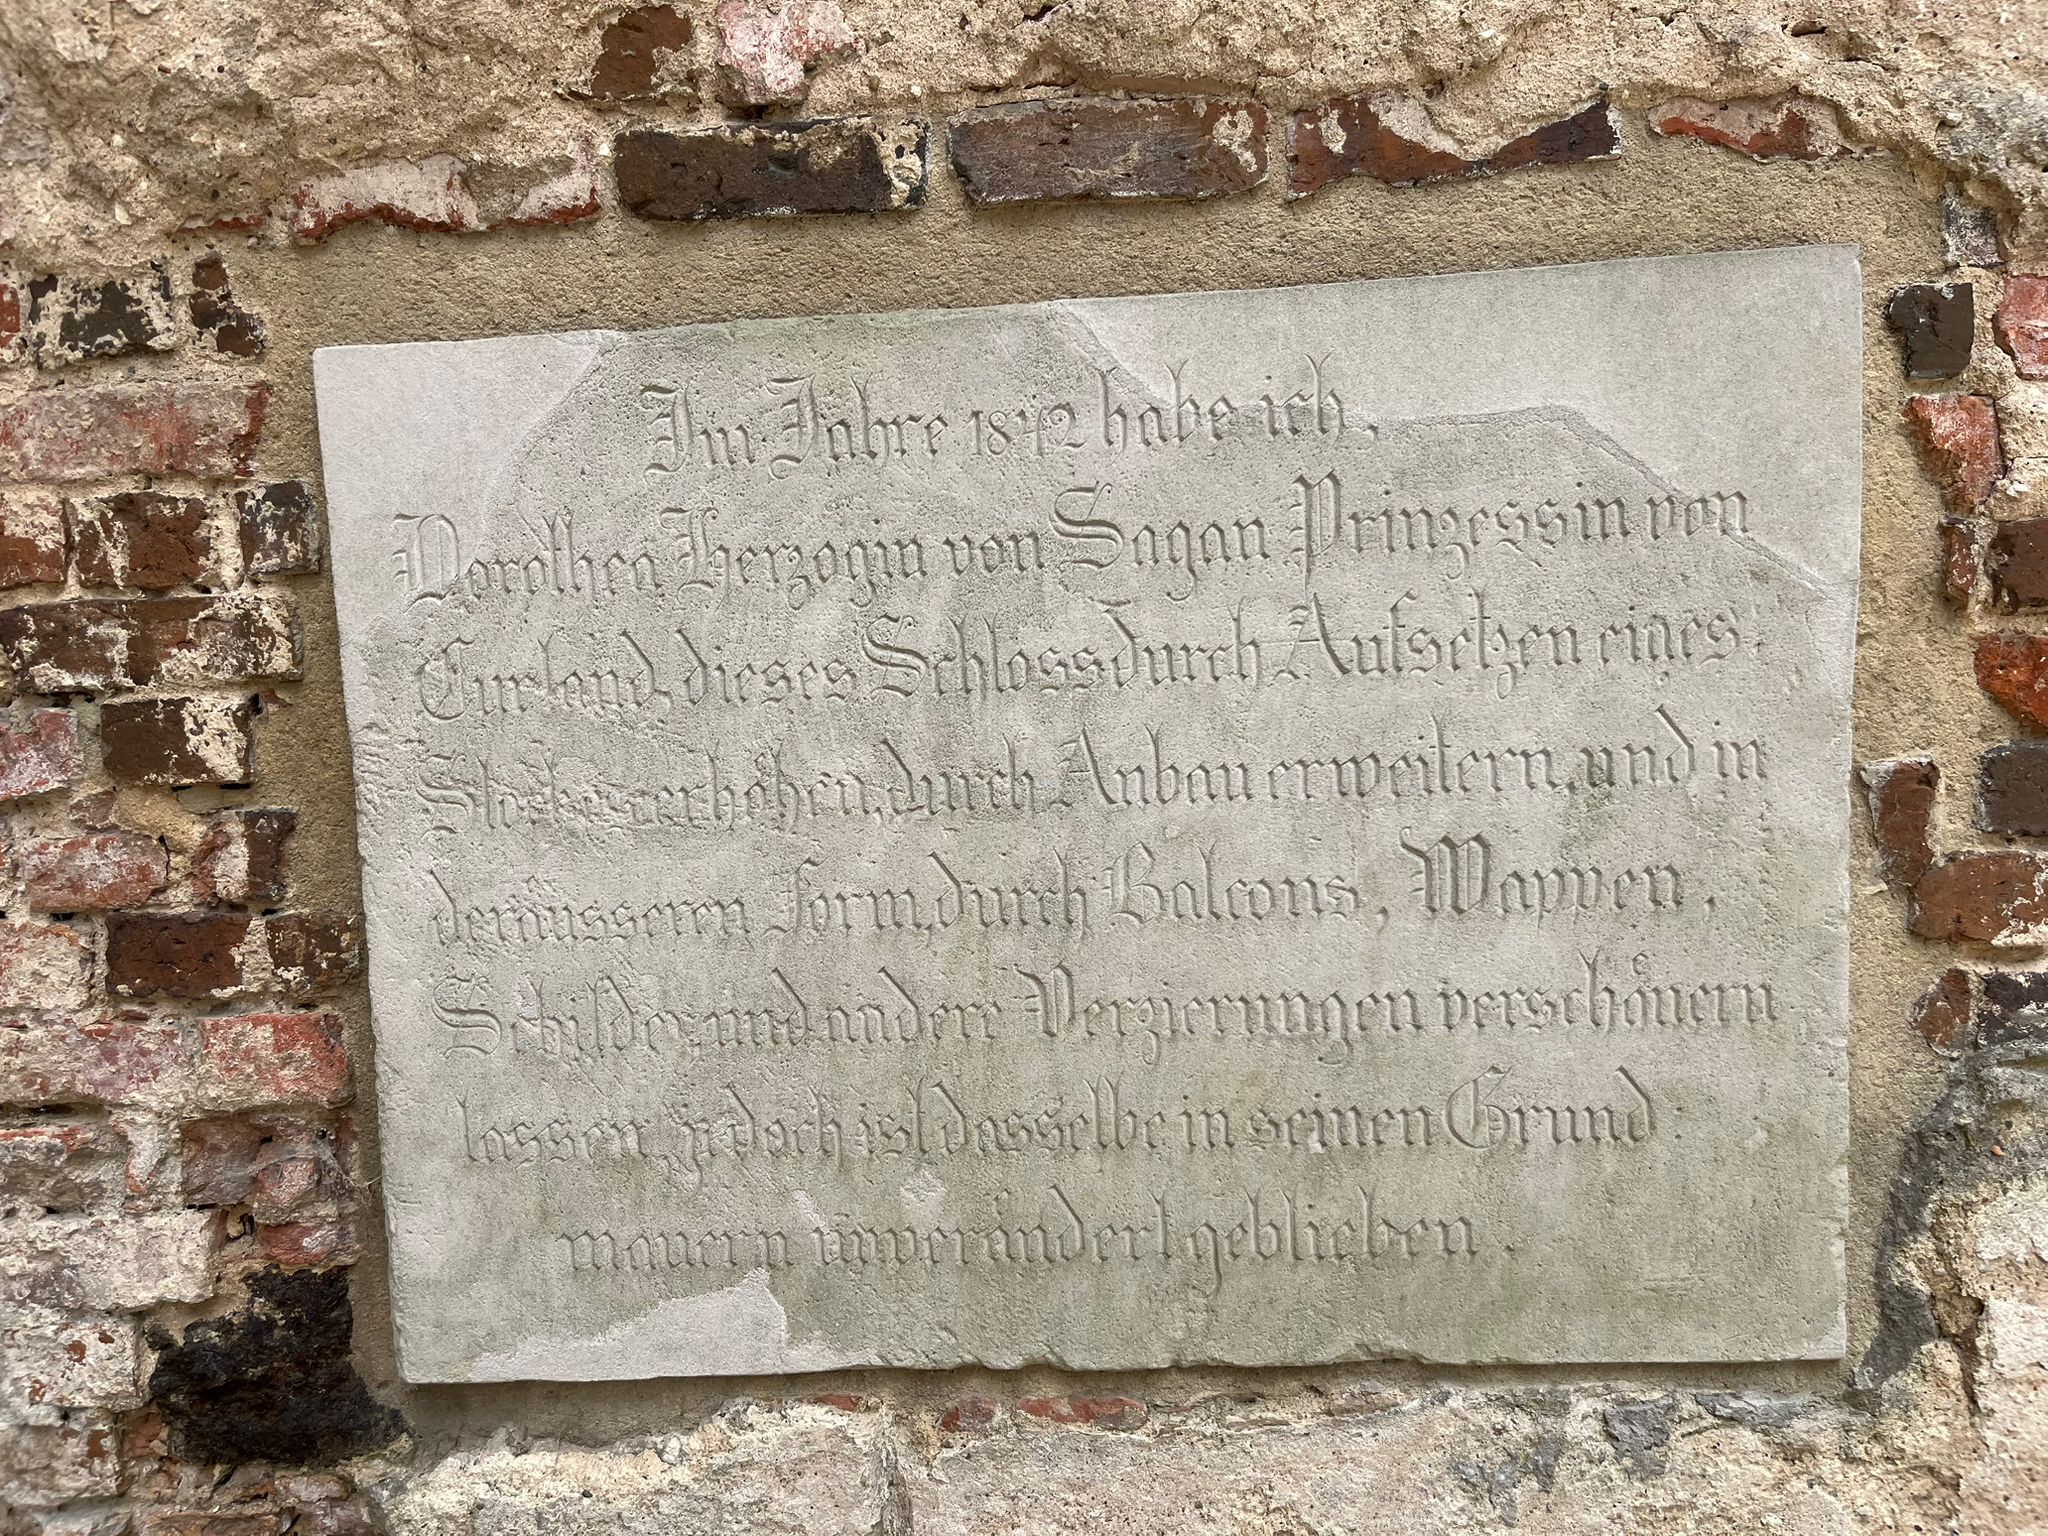 Im Jahre 1842 habe ich,
Dorothea Herzogin von Sagan Prinzessin von
Curland, dieses Schloss durch Aufsetzen eines
Stockes erhöhen, durch Anbau erweitern, und in
der äusseren Form, durch Balcons, Wappen,
Schilder und andere Verzierungen verschönern
lassen, jedoch ist dasselbe in seinen Grund:
mauern unverändert geblieben.